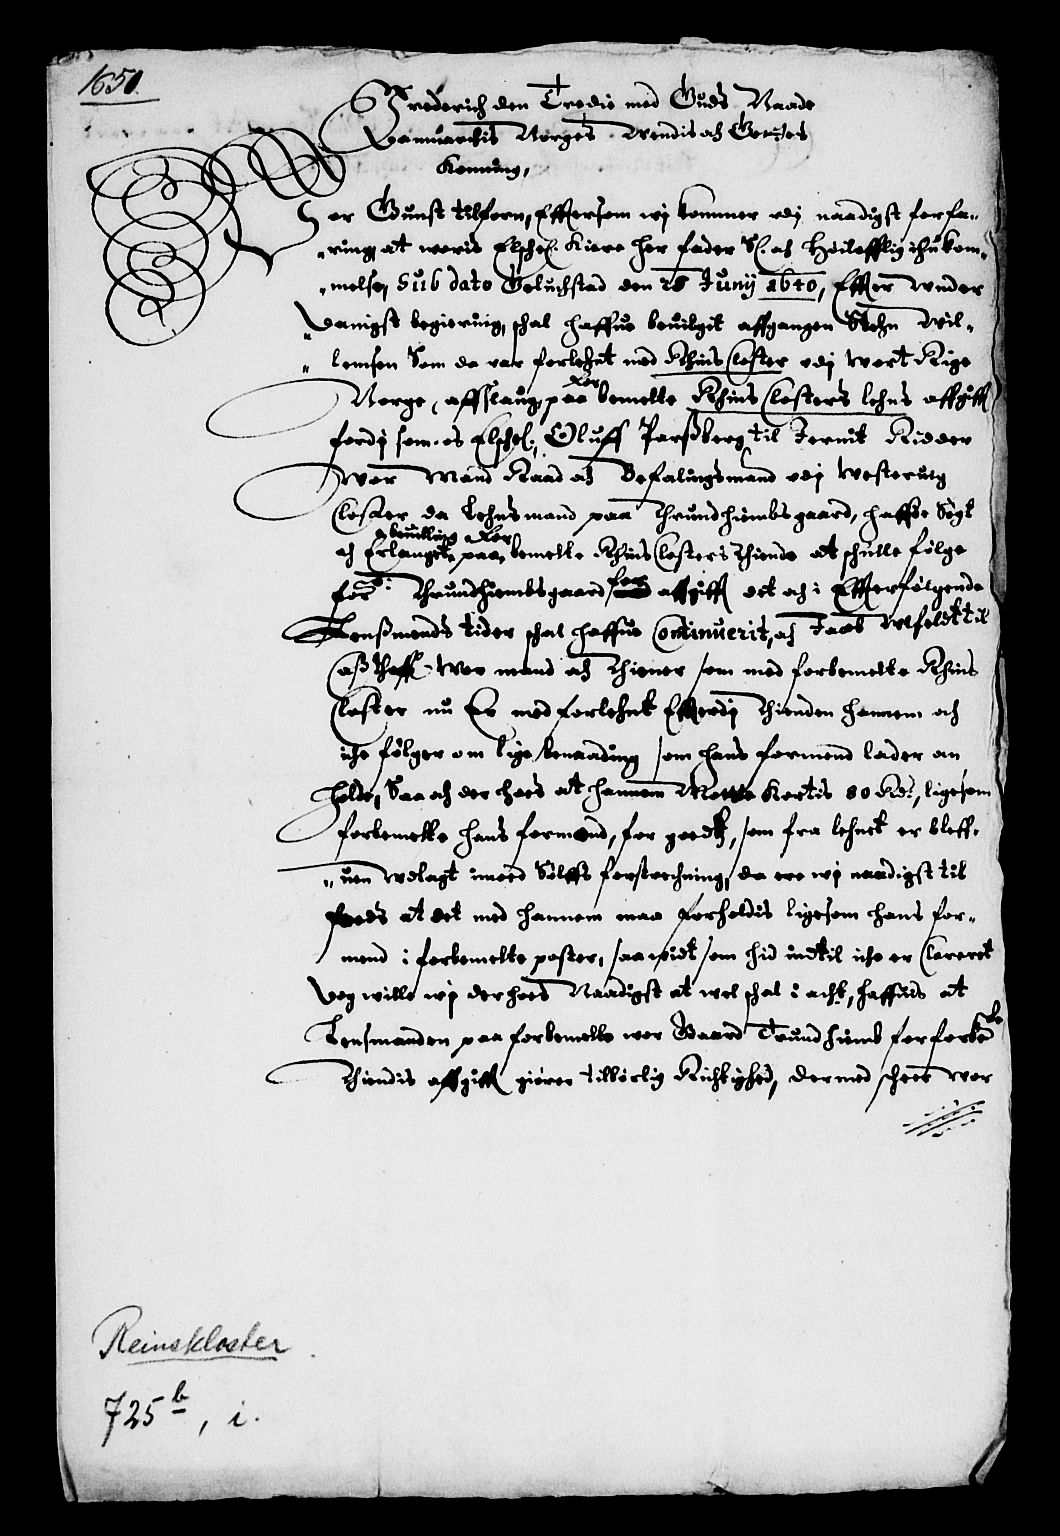 1650.
Frederich den Tredie med Guds Naade
Danmarchis Norges Wendis och Gotes
Konning,
Vor Gunst tilforn, Efftersom wj kommer udj naadigst forfa-
ring, at woris Elschel: Kiere her fader S: och Høilofflig ihukom-
melse, Sub dato Gluchstad den 28 Junij 1640, Efter wnder
danigst begiering, schal haffue beuilgit affgangen Stehn Wil-
lemsen Som da var forlehnt med Rhins Closter udj wort Rige
Norge, affslaug, paa bemelte Rhins Closters lehns affgifft
fordj som os Elschel: Oluff Parssberg til Jernit Ridder
Wor Mand Raad och Befalingsmand udj Westeruig
Closter da Lehnsmand paa Thrundhiembs gaard, haffde Søgt
och Erlangit beuilling paa, bemelte Rhins Closters thiende at schulle følge
for: Thrundhiembsgaard for affgifft det och i Effterfølgende
Lensmends tider schal haffue Continuerit, och Jacob Ulfeldt til
wor mand och thiener som med forbemelte Rhins
Closter nu Er med forlehnt Efterdj thienden hannem och
iche følger om lige benaading som hans formend lader an
holde, Saa och der hoes at hannem Motte Kortis 80 Rdr, ligesom
forbemelte hans formend, for goedtz, som fra lehnet er bleff-
uen udlagt imod Sølffs forstrechning, da ere wj naadigst til
freds at det med hannem maa forholdis ligesom hans for-
mend i forbemelte poster, saa widt som hid indtil iche er Clareret
Dog wille wj der hoes Naadigst at wel schal i acht, haffuis at
Lensmanden paa forbemelte wor Gaard Trundhiemb for forbe:te
thiendis affgifft giører tilbørlig Richtighed, dermed scheer wor
Reinskloster.
725 b, i.